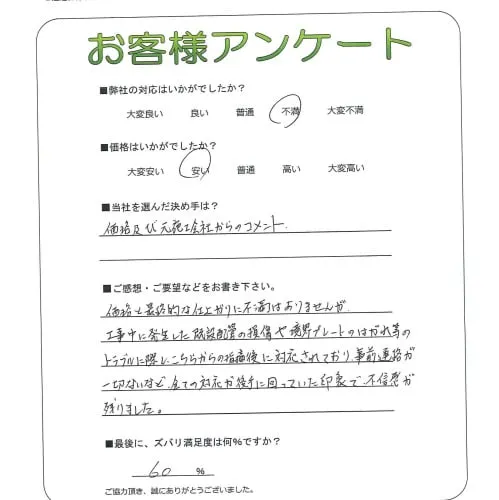 お客様アンケート
■弊社の対応はいかがでしたか?
大変良い 良い 普通 不満 大変不満
■価格はいかがでしたか?
大変安い 安い 普通 高い 大変高い
■当社を選んだ決め手は?
価格及び元施工会社からのコメント
■ご感想・ご要望などをお書き下さい。
価格と最終的な仕上がりに不満はありませんが
工事中に発生した既設配管の損傷や境界プレートのはがれ等の
トラブルに際し、こちらからの指摘後に対応されており、事前連絡が
一切ないなど、全ての対応が後手に回っていた印象で、不信感が
残りました。
■最後に、ズバリ満足度は何%ですか?
60 %
ご協力頂き、誠にありがとうございました。